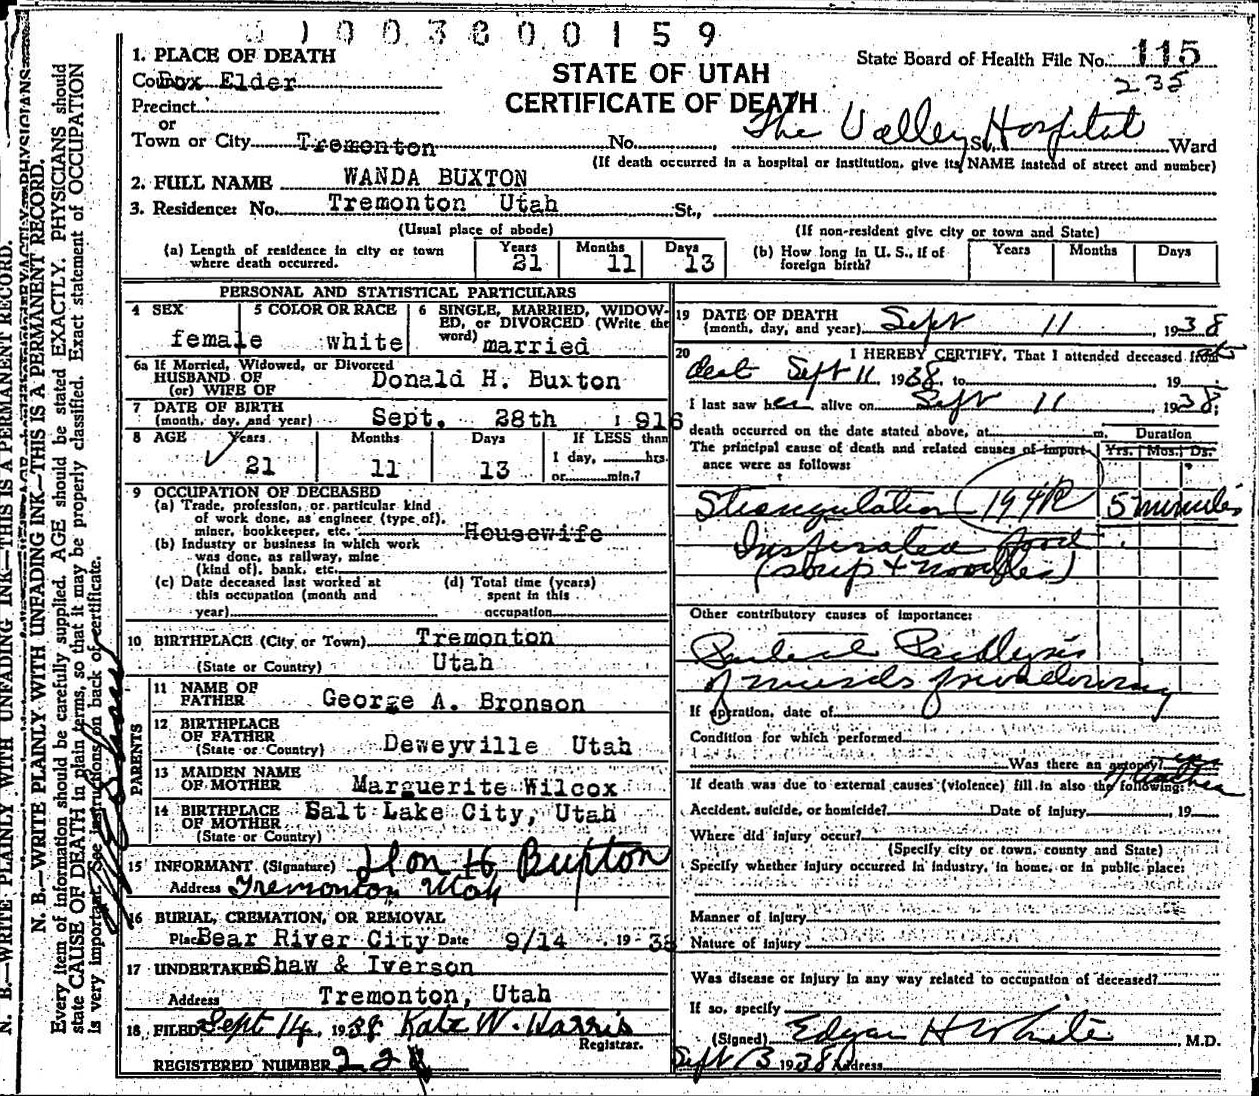 1003800159
1. PLACE OF DEATH
County Box Elder
State Board of Health File No. 115
235
STATE OF UTAH
CERTIFICATE OF DEATH
Precinct
or
Town or City Tremonton No. The Valley Hospital St. Ward
(If death occurred in a hospital or institution, give its NAME instead of street and number)
2. FULL NAME WANDA BUXTON
3. Residence: No. Tremonton Utah St.,
(Usual place of abode) (If non-resident give city or town and State)
(a) Length of residence in city or town where death occurred. Years 21 Months 11 Days 13
(b) How long in U. S., if of foreign birth? Years Months Days
PERSONAL AND STATISTICAL PARTICULARS
4 SEX female
5 COLOR OR RACE white
6 SINGLE, MARRIED, WIDOWED, or DIVORCED (Write the word) married
6a If Married, Widowed, or Divorced
HUSBAND OF
(or) WIFE OF Donald H. Buxton
7 DATE OF BIRTH
(month, day, and year) Sept. 28th 1916
8 AGE Years 21 Months 11 Days 13
If LESS than
1 day, hrs.
or min.?
9 OCCUPATION OF DECEASED
(a) Trade, profession, or particular kind
of work done, as engineer (type of),
miner, bookkeeper, etc. Housewife
(b) Industry or business in which work
was done, as railway, mine
(kind of), bank, etc.
(c) Date deceased last worked at
this occupation (month and
year)
(d) Total time (years)
spent in this
occupation
10 BIRTHPLACE (City or Town) Tremonton
(State or Country) Utah
PARENTS
11 NAME OF
FATHER George A. Bronson
12 BIRTHPLACE
OF FATHER
(State or Country) Deweyville Utah
13 MAIDEN NAME
OF MOTHER Marguerite Wilcox
14 BIRTHPLACE
OF MOTHER Salt Lake City, Utah
(State or Country)
15 INFORMANT (Signature) Don H Buxton
Address Tremonton Utah
16 BURIAL, CREMATION, OR REMOVAL
Place Bear River City Date 9/14 1938
17 UNDERTAKER Shaw & Iverson
Address Tremonton, Utah
18 FILED Sept 14, 1938 Kate W. Harris
Registrar.
REGISTERED NUMBER 22
19 DATE OF DEATH
(month, day, and year) Sept 11 1938
20 I HEREBY CERTIFY, That I attended deceased from
Sept 11, 1938, to 19
I last saw her alive on Sept 11, 1938;
death occurred on the date stated above, at m.
The principal cause of death and related causes of importance were as follows:
Duration
Yrs. Mos. Ds.
Strangulation 5 minutes
Inspirated food
(soup + noodles)
Other contributory causes of importance:
Paralysis
of muscles of swallowing
If operation, date of
Condition for which performed
Was there an autopsy?
If death was due to external causes (violence) fill in also the following:
Accident, suicide, or homicide? Date of injury , 19
Where did injury occur?
(Specify city or town, county and State)
Specify whether injury occurred in industry, in home, or in public place:
Manner of injury
Nature of injury
Was disease or injury in any way related to occupation of deceased?
If so, specify
(Signed) Edgar H White, M.D.
Sept 13 1938 Address
N. B.—WRITE PLAINLY WITH UNFADING INK—THIS IS A PERMANENT RECORD.
N. B.—WRITE PLAINLY WITH UNFADING INK—THIS IS A PERMANENT RECORD.
Every item of information should be carefully supplied. AGE should be stated EXACTLY. PHYSICIANS should
state CAUSE OF DEATH in plain terms, so that it may be properly classified. Exact statement of OCCUPATION
is very important. See instructions on back of certificate.